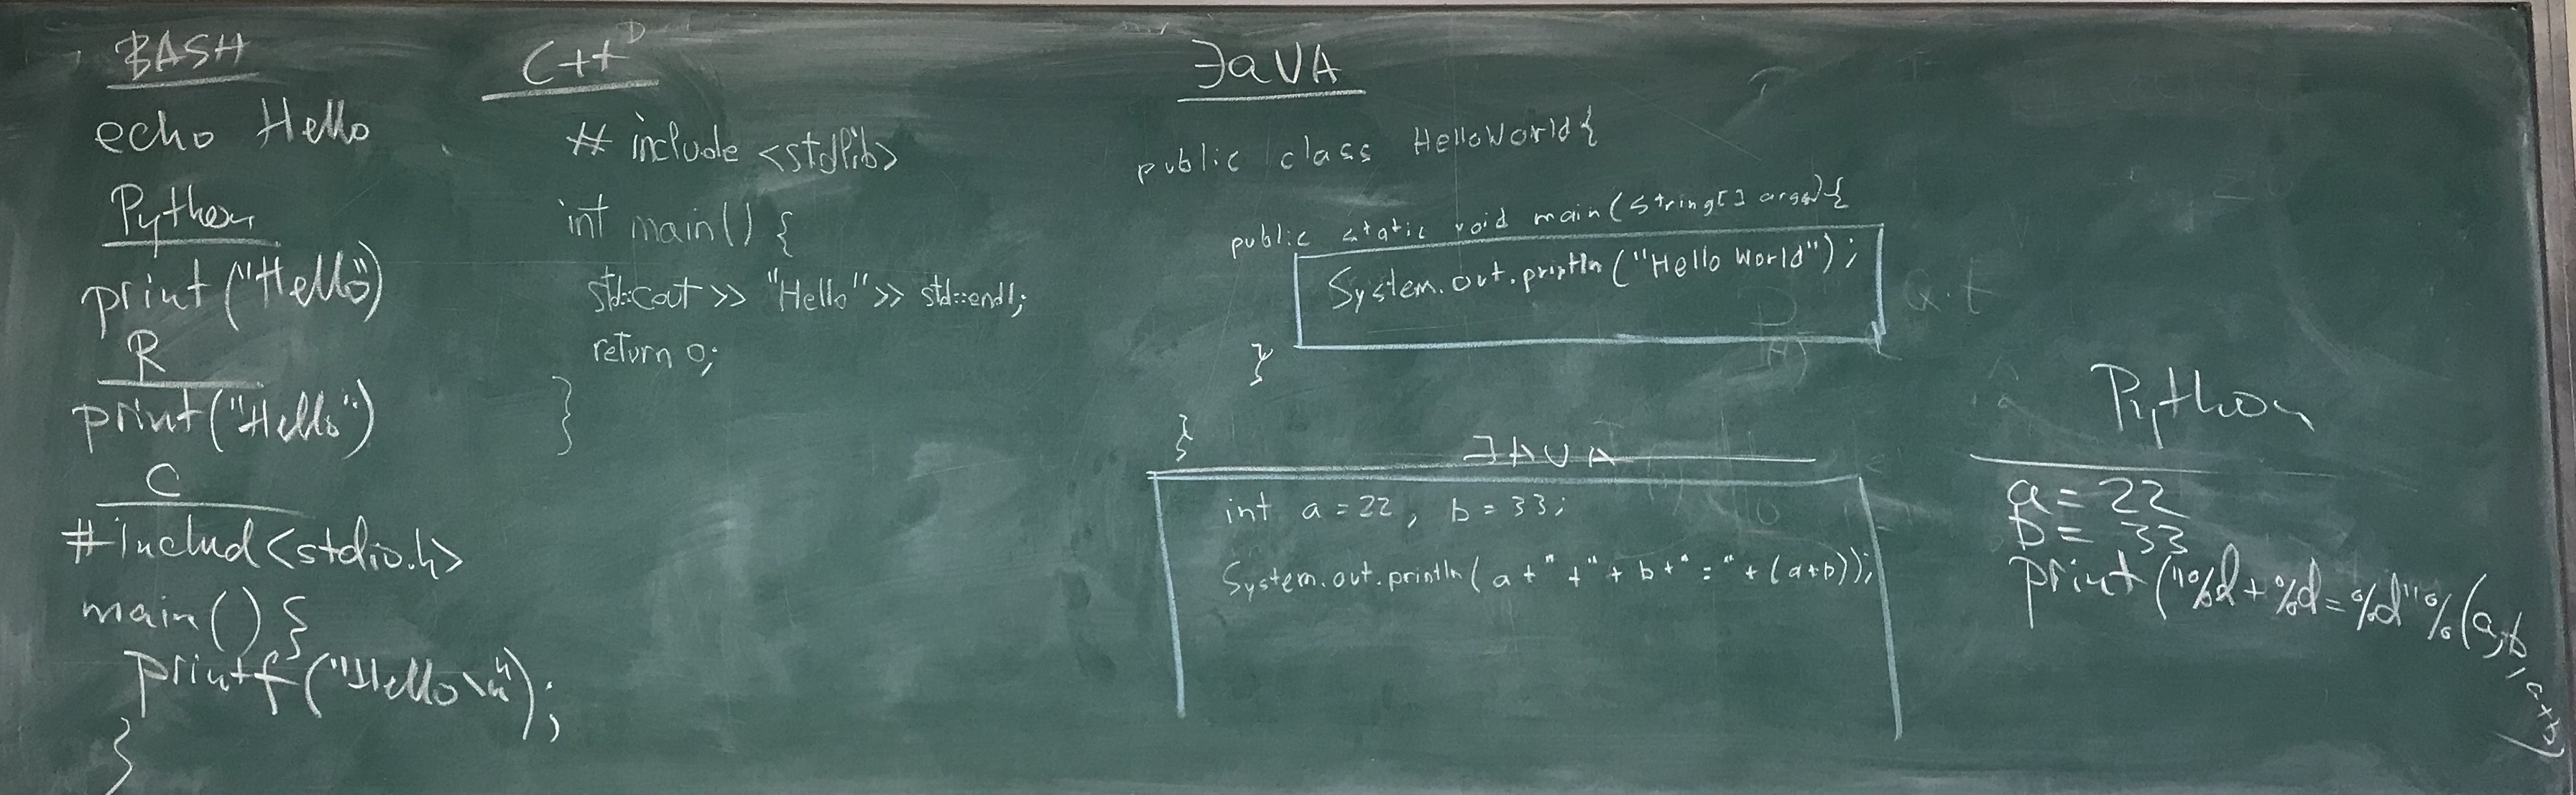 BASH
echo Hello
Python
print("Hello")
R
print("Hello")
C
#includ<stdio.h>
main(){
printf("Hello\n");
}
C++
# include <stdlib>
int main() {
std::cout >> "Hello" >> std::endl;
return 0;
}
JaVA
public class HelloWorld{
public static void main(String[] args){
System.out.println("Hello World");
}
}
JAVA
int a = 22, b = 33;
System.out.println(a+"+"+b+"="+(a+b));
Python
a = 22
b = 33
print("%d+%d=%d"%(a,b,a+b)